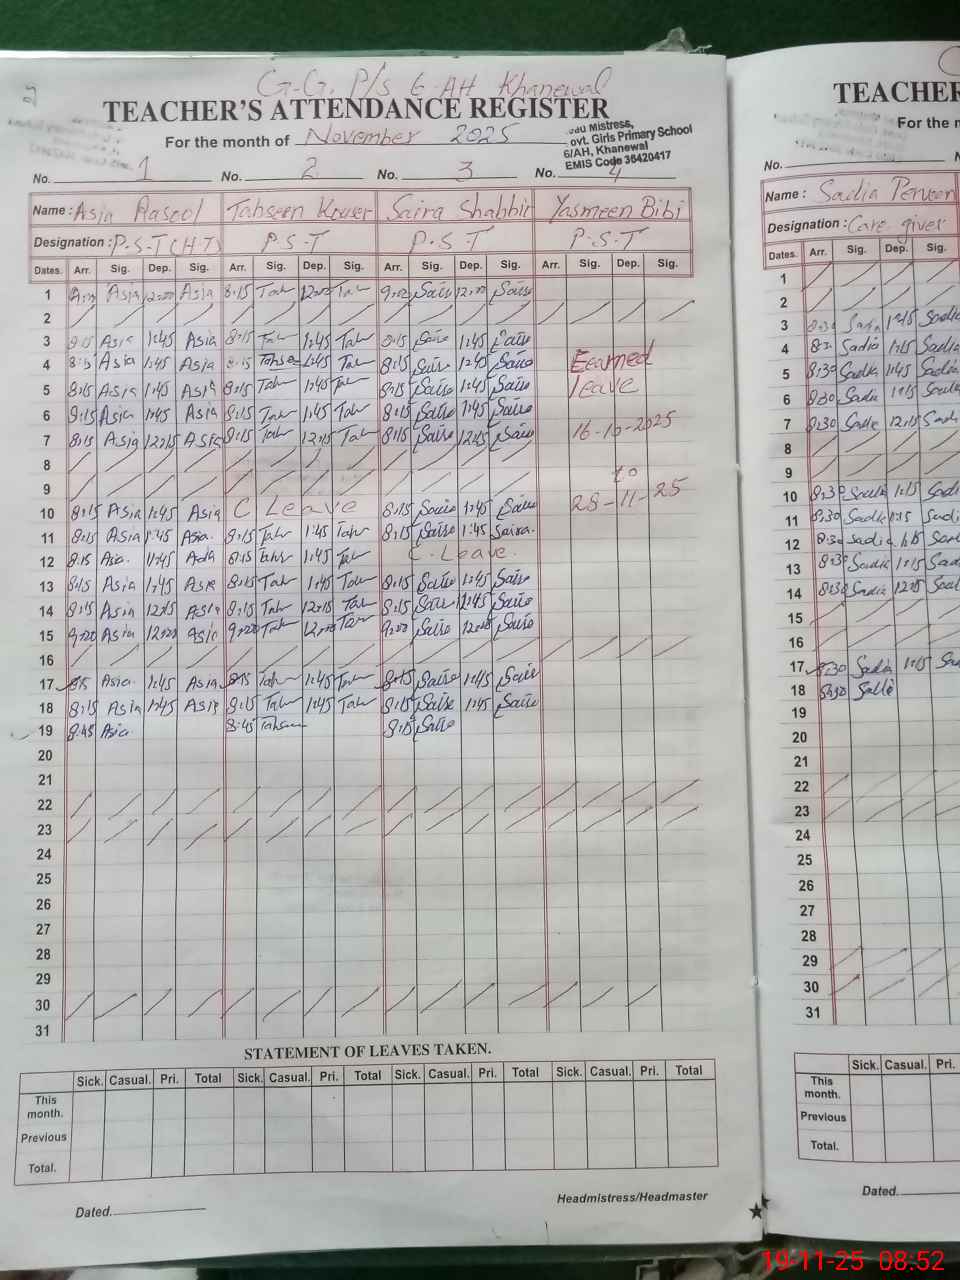 G.G. P/S 6-AH Khanewal
TEACHER'S ATTENDANCE REGISTER
For the month of November 2025
Head Mistress,
Govt. Girls Primary School
6/AH, Khanewal
EMIS Code 36420417
No. 1 No. 2 No. 3 No. 4
Name : Asia Rasool Tahseen Kouser Saira Shabbir Yasmeen Bibi
Designation : P.S.T (H.T) P.S.T P.S.T P.S.T
Dates. Arr. Sig. Dep. Sig. Arr. Sig. Dep. Sig. Arr. Sig. Dep. Sig. Arr. Sig. Dep. Sig.
1 Asia 12:00 Asia 8:15 Tah 12:00 Tah 9:00 Saira 12:00 Saira
2
3 8:15 Asia 1:45 Asia 8:15 Tah 1:45 Tah 8:15 Saira 1:45 Saira
4 8:15 Asia 1:45 Asia 8:15 Tahse 1:45 Tah 8:15 Saira 1:45 Saira Earned
5 8:15 Asia 1:45 Asia 8:15 Tah 1:45 Tah 8:15 Saira 1:45 Saira leave
6 8:15 Asia 1:45 Asia 8:15 Tah 1:45 Tah 8:15 Saira 1:45 Saira
7 8:15 Asia 12:15 Asia 8:15 Tah 12:15 Tah 8:15 Saira 12:15 Saira 16-10-2025
8
9 to
10 8:15 Asia 1:45 Asia C Leave 8:15 Saira 1:45 Saira 28-11-25
11 8:15 Asia 1:45 Asia. 8:15 Tah 1:45 Tah 8:15 Saira 1:45 Saira.
12 8:15 Asia. 1:45 Asia 8:15 Tah 1:45 Ta C. Leave.
13 8:15 Asia 1:45 Asia 8:15 Tah 1:45 Tah 8:15 Saira 1:45 Saira
14 8:15 Asia 12:15 Asia 8:15 Tah 12:15 Tah 8:15 Saira 12:45 Saira
15 9:00 Asia 12:00 Asia 9:00 Tah 12:00 Tah 9:00 Saira 12:00 Saira
16
17 8:15 Asia. 1:45 Asia 8:15 Tah 1:45 Tah 8:15 Saira 1:45 Saira
18 8:15 Asia 1:45 Asia 8:15 Tah 1:45 Tah 8:15 Saira 1:45 Saira
19 8:45 Asia 8:45 Tahseen 8:15 Saira
20
21
22
23
24
25
26
27
28
29
30
31
STATEMENT OF LEAVES TAKEN.
Sick. Casual. Pri. Total Sick. Casual. Pri. Total Sick. Casual. Pri. Total Sick. Casual. Pri. Total
This month.
Previous
Total.
Dated. Headmistress/Headmaster
TEACHER
For the m
No.
Name : Sadia Perveen
Designation : Care giver
Dates. Arr. Sig. Dep. Sig.
1
2
3 8:30 Sadia 1:15 Sadia
4 8:30 Sadia 1:15 Sadia
5 8:30 Sadia 1:45 Sadia
6 8:30 Sadia 1:15 Sadia
7 8:30 Sadia 12:15 Sadi
8
9
10 8:30 Sadia 1:15 Sadi
11 8:30 Sadia 1:15 Sadi
12 8:30 Sadia 1:15 Sad
13 8:30 Sadia 1:15 Sad
14 8:30 Sadia 12:15 Sad
15
16
17 8:30 Sadia 1:15 Sa
18 8:30 Sadia
19
20
21
22
23
24
25
26
27
28
29
30
31
Sick. Casual. Pri.
This month.
Previous
Total.
Dated.
19-11-25 08:52